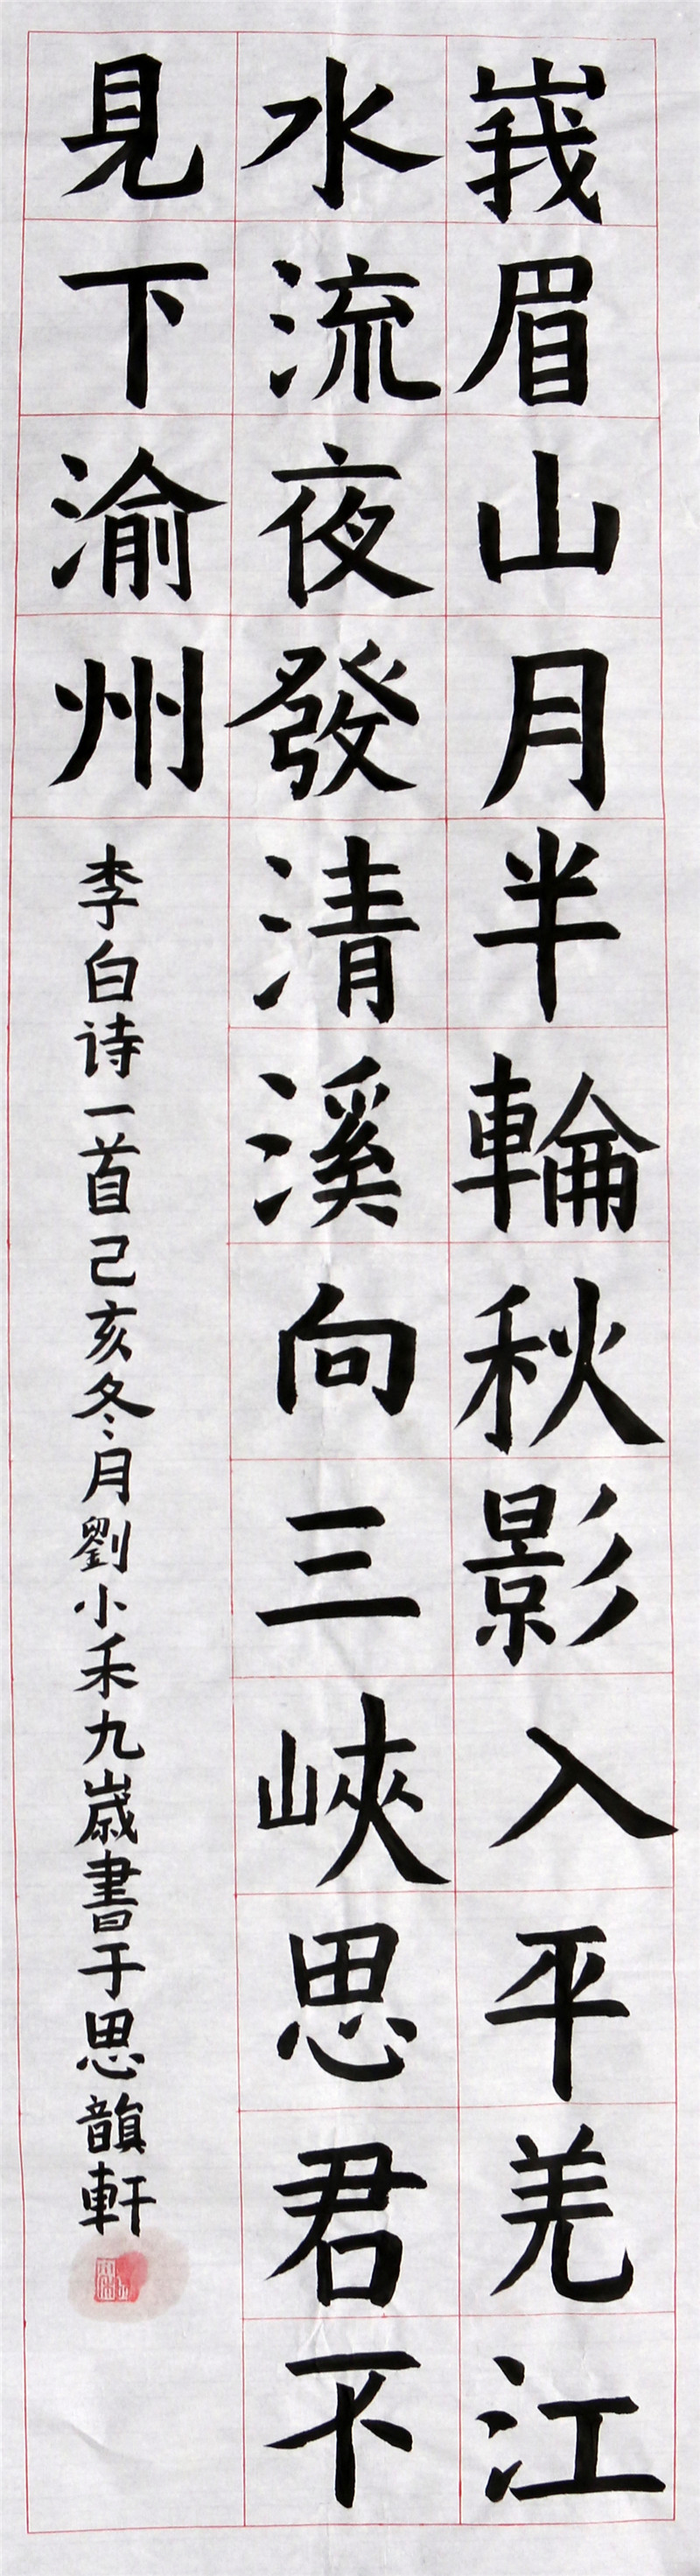 峩眉山月半輪秋影入平羌江
水流夜發清溪向三峽思君不
見下渝州
李白诗一首己亥冬月劉小禾九歲書于思韻軒